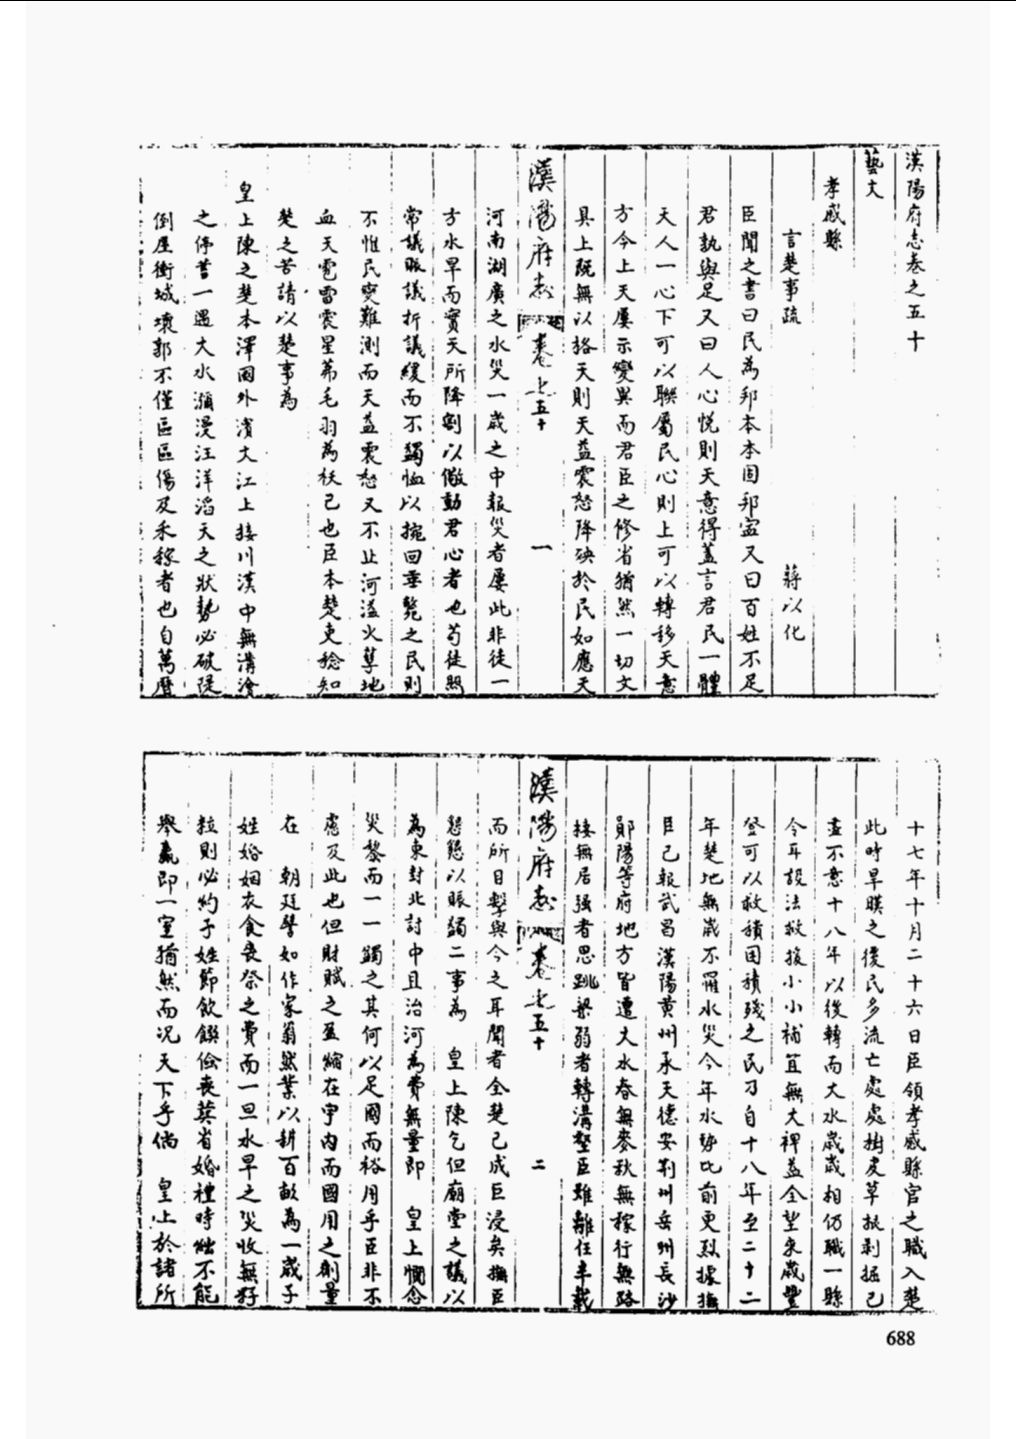 漢陽府志卷之五十
藝文
孝感縣
言楚事疏 蔣以化
臣聞之書曰民為邦本本固邦寍又曰百姓不足
君孰與足又曰人心悅則天意得蓋言君民一體
天人一心下可以聯屬民心則上可以轉移天意
方今上天屢示變異而君臣之修省猶然一切文
具上旣無以格天則天益震怒降殃於民如應天
漢陽府志 卷之五十 一
河南湖廣之水災一歲之中報災者屢此非徒一
方水旱而實天所降割以儆動君心者也苟徒照
常議賑議折議緩而不蠲恤以挽回垂斃之民則
不惟民變難測而天益震怒又不止河溢火孽地
血天雹雷震星茀毛羽為妖已也臣本楚吏稔知
楚之苦請以楚事為
皇上陳之楚本澤國外濱大江上接川漢中無溝澮
之停蓄一遇大水瀰漫汪洋滔天之狀勢必破隄
倒屋衝城壞郭不僅區區傷及禾稼者也自萬曆
十七年十月二十六日臣領孝感縣官之職入楚
此時旱暵之後民多流亡處處樹皮草根剥掘已
盡不意十八年以後轉而大水歲歲相仍職一縣
令耳設法救援小小補苴無大裨益全望來歲豐
登可以救積困積殘之民乃自十八年至二十二
年楚地無歲不罹水災今年水勢比前更烈據撫
臣已報武昌漢陽黄州承天德安荆州岳州長沙
鄖陽等府地方皆遭大水春無麥秋無稼行無路
接無居强者思跳梁弱者轉溝壑臣雖離任半載
漢陽府志 卷之五十 二
而所目擊與今之耳聞者全楚已成巨浸矣撫臣
懇懇以賑蠲二事為 皇上陳乞但廟堂之議以
為東封北討中且治河為費無量即 皇上憫念
災黎而一一蠲之其何以足國而裕用乎臣非不
慮及此也但財賦之盈縮在宇内而國用之劑量
在 朝廷譬如作家翁然業以耕百畝為一歲子
姓婚姻衣食喪祭之費而一旦水旱之災收無籽
粒則必約子姓節飲饌儉喪葬省婚禮時絀不能
舉贏即一室猶然而况天下乎倘 皇上於諸所
688